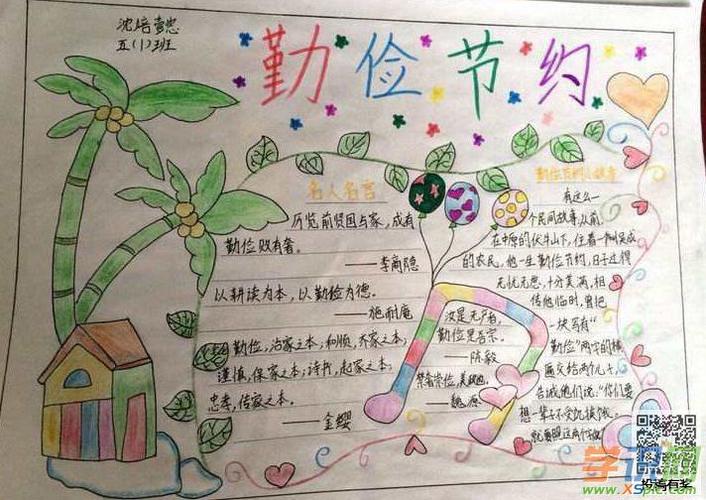 五(1)班
勤俭节约
名人名言
历览前贤国与家，成有
勤俭败有奢。
——李商隐
以耕读为本，以勤俭为德。
——施耐庵
勤俭，治家之本；和顺，齐家之本；
谨慎，保家之本；诗书，起家之本；
忠孝，传家之本。
——金缨
汝是无产者，
勤俭是吾宗。
——陈毅
禁奢崇俭，美政也。
——魏源
有这么一
个民间故事，从前，
在中原的伏牛山下，住着一个叫吴成
的农民，他一生勤俭节约，日子过得
无忧无愁，十分美满，相
传他临时，曾把
一块写有“
勤俭”两字的横
匾交给两个儿子，
告诫他们说：“你们要
想一辈子不受饥挨饿，
就要照这两个字做
学课网
www.xspic.com
投稿有奖